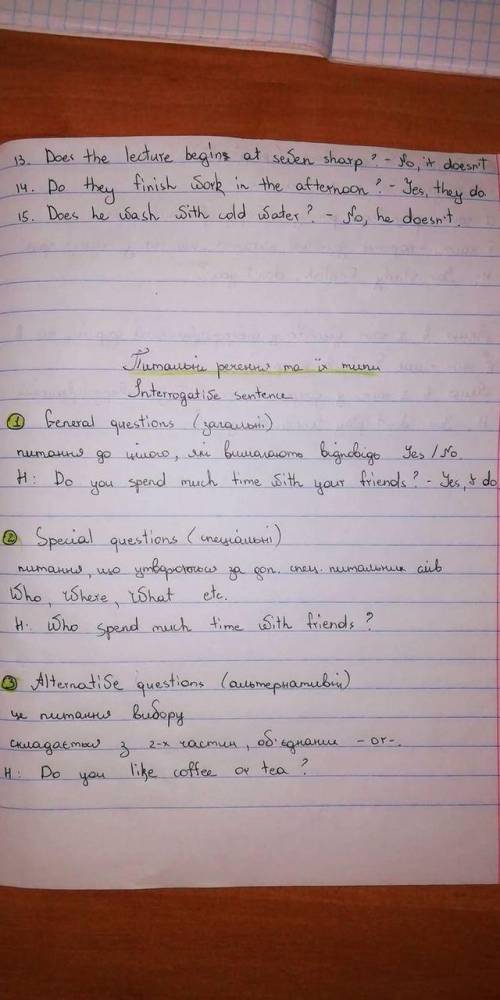 13. Does the lecture begins at seven sharp? - No, it doesn't
14. Do they finish work in the afternoon? - Yes, they do.
15. Does he wash with cold water? - No, he doesn't.
Питальні речення та їх типи
Interrogative sentence
1 General questions (загальні)
питання до цілого, які вимагають відповідь Yes / No.
Н: Do you spend much time with your friends? - Yes, I do
2 Special questions (спеціальні)
питання, що утворюються за доп. спец. питальних слів
Who, Where, What etc.
Н: Who spend much time with friends?
3 Alternative questions (альтернативні)
це питання вибору
складається з 2-х частин, об'єднани -or-.
Н: Do you like coffee or tea?